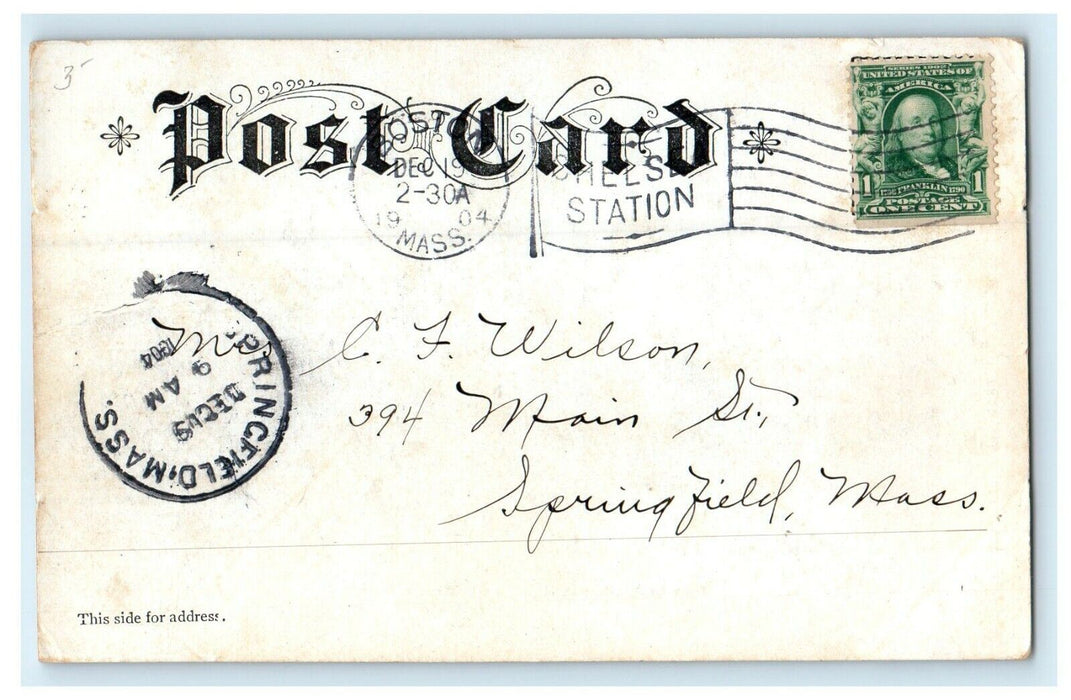 3
Post Card
BOSTON
DEC 19
2-30A
19 04
MASS.
CHELSEA
STATION
SERIES 1902
UNITED STATES OF
AMERICA
1 1706 FRANKLIN 1790 1
POSTAGE
ONE CENT
SPRINGFIELD, MASS.
DEC 19
9 AM
1904
C. F. Wilson,
394 Main St.,
Springfield, Mass.
This side for address.